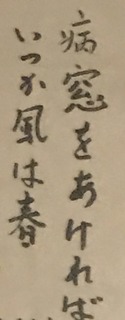 病窓をあければ
いつか風は春